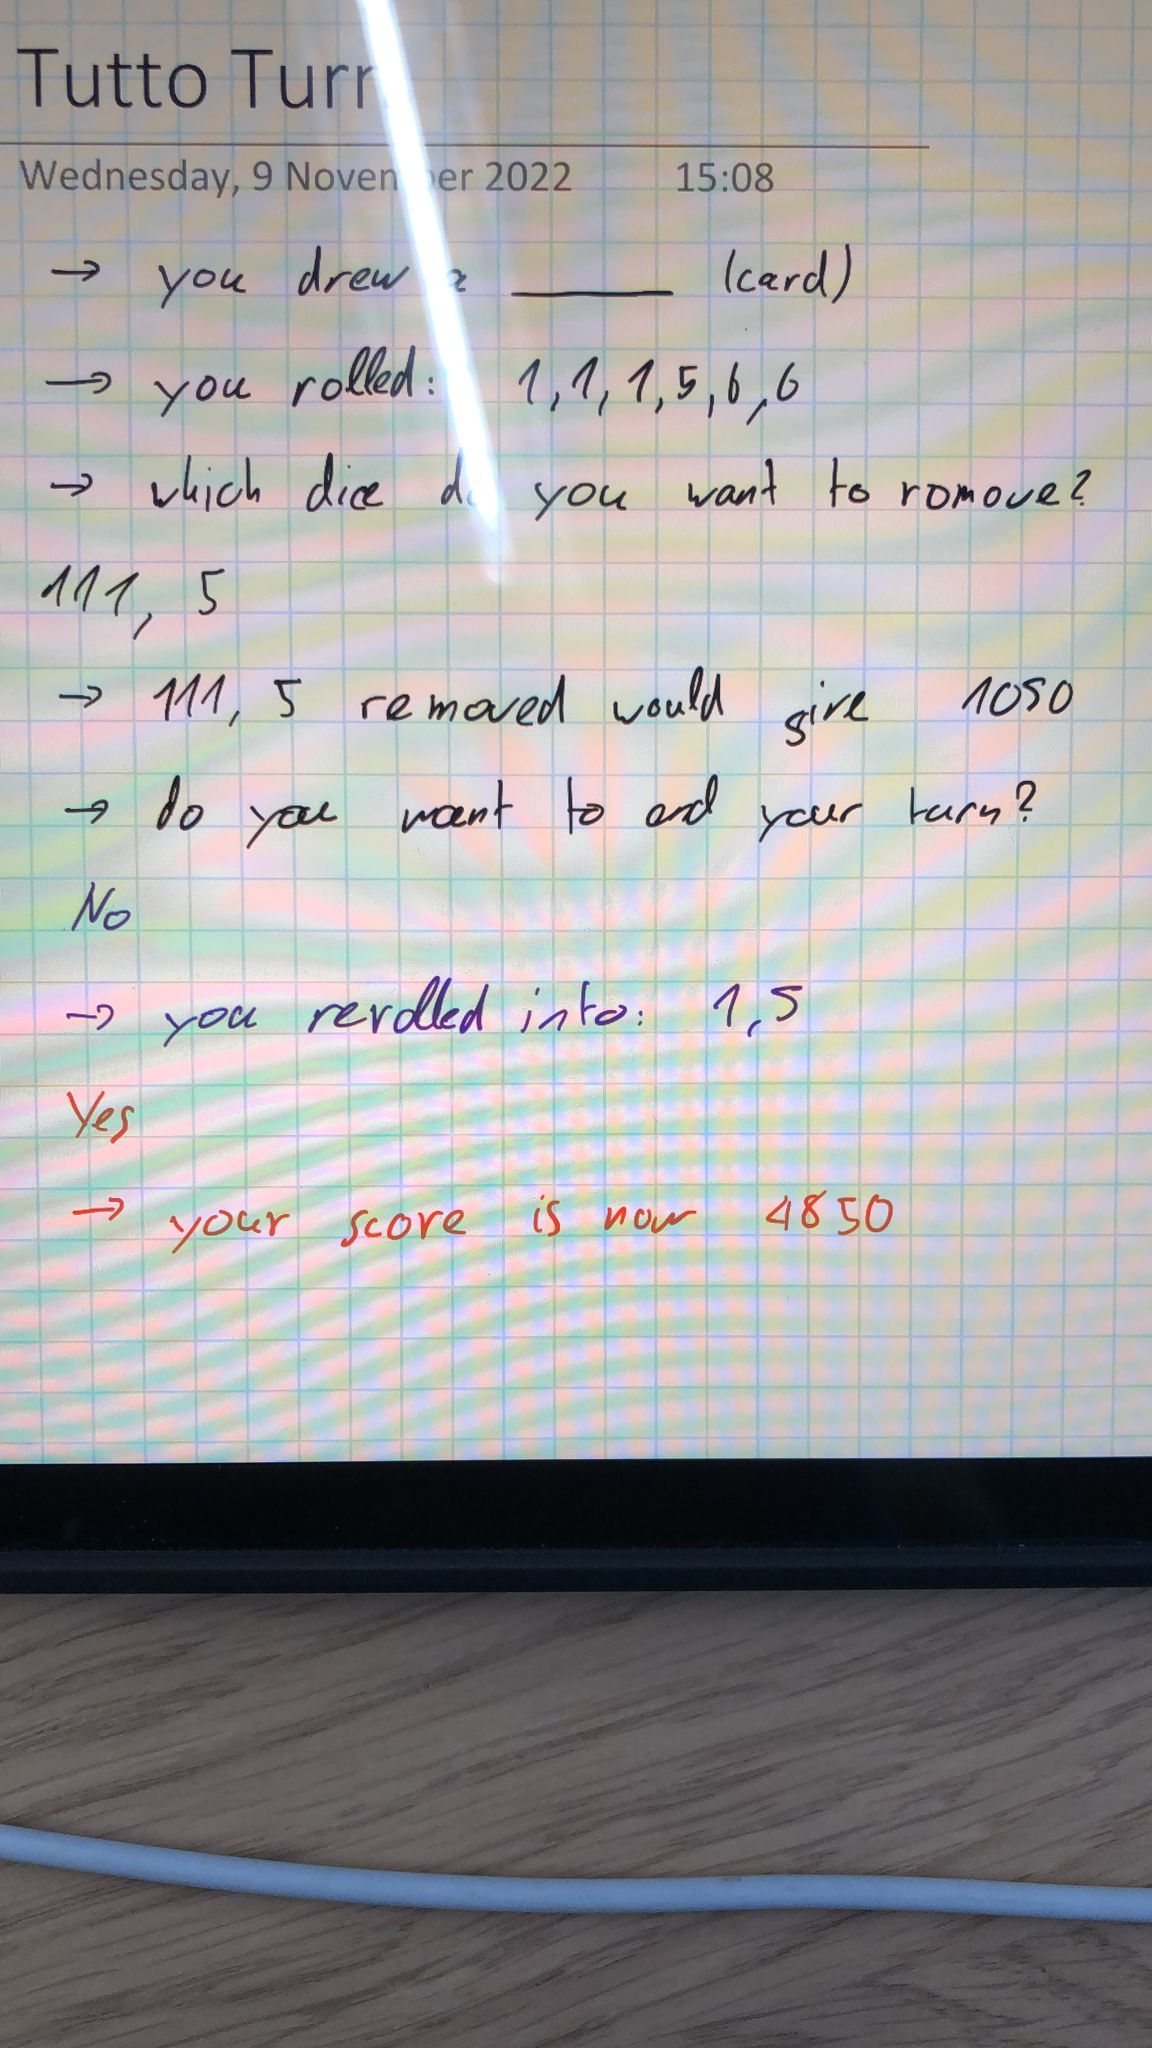 Tutto Turn
Wednesday, 9 November 2022 15:08
→ you drew a ______ (card)
→ you rolled: 1,1,1,5,6,6
→ which dice do you want to romove?
111, 5
→ 111, 5 removed would give 1050
→ do you want to end your turn?
No
→ you rerolled into: 1,5
Yes
→ your score is now 4850